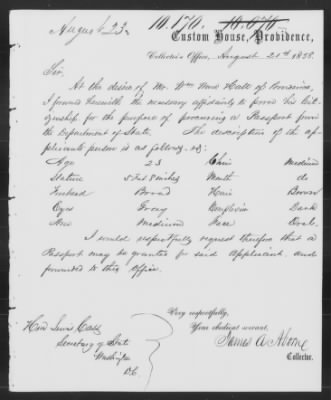 August 23
10.170. 10.070
Custom House, Providence,
Collector's Office, August 21st 1858.
Sir,
At the desire of Mr. Wm Hall of Providence,
I forward herewith the necessary affidavits to prove his Citi-
zenship for the purpose of procuring a Passport from
the Department of State. The description of the ap-
plicants person is as follows, viz:
Age 23 Chin Medium
Stature 5 Feet 8 inches Mouth do
Forehead Broad Hair Brown
Eyes Gray Complexion Dark
Nose Medium Face Oval
I would respectfully request therefore that a
Passport may be granted for said Applicant and
forwarded to this Office.
Very respectfully,
Your obedient servant,
James A Aborn
Collector.
Hon Lewis Cass
Secretary of State
Washington
D.C